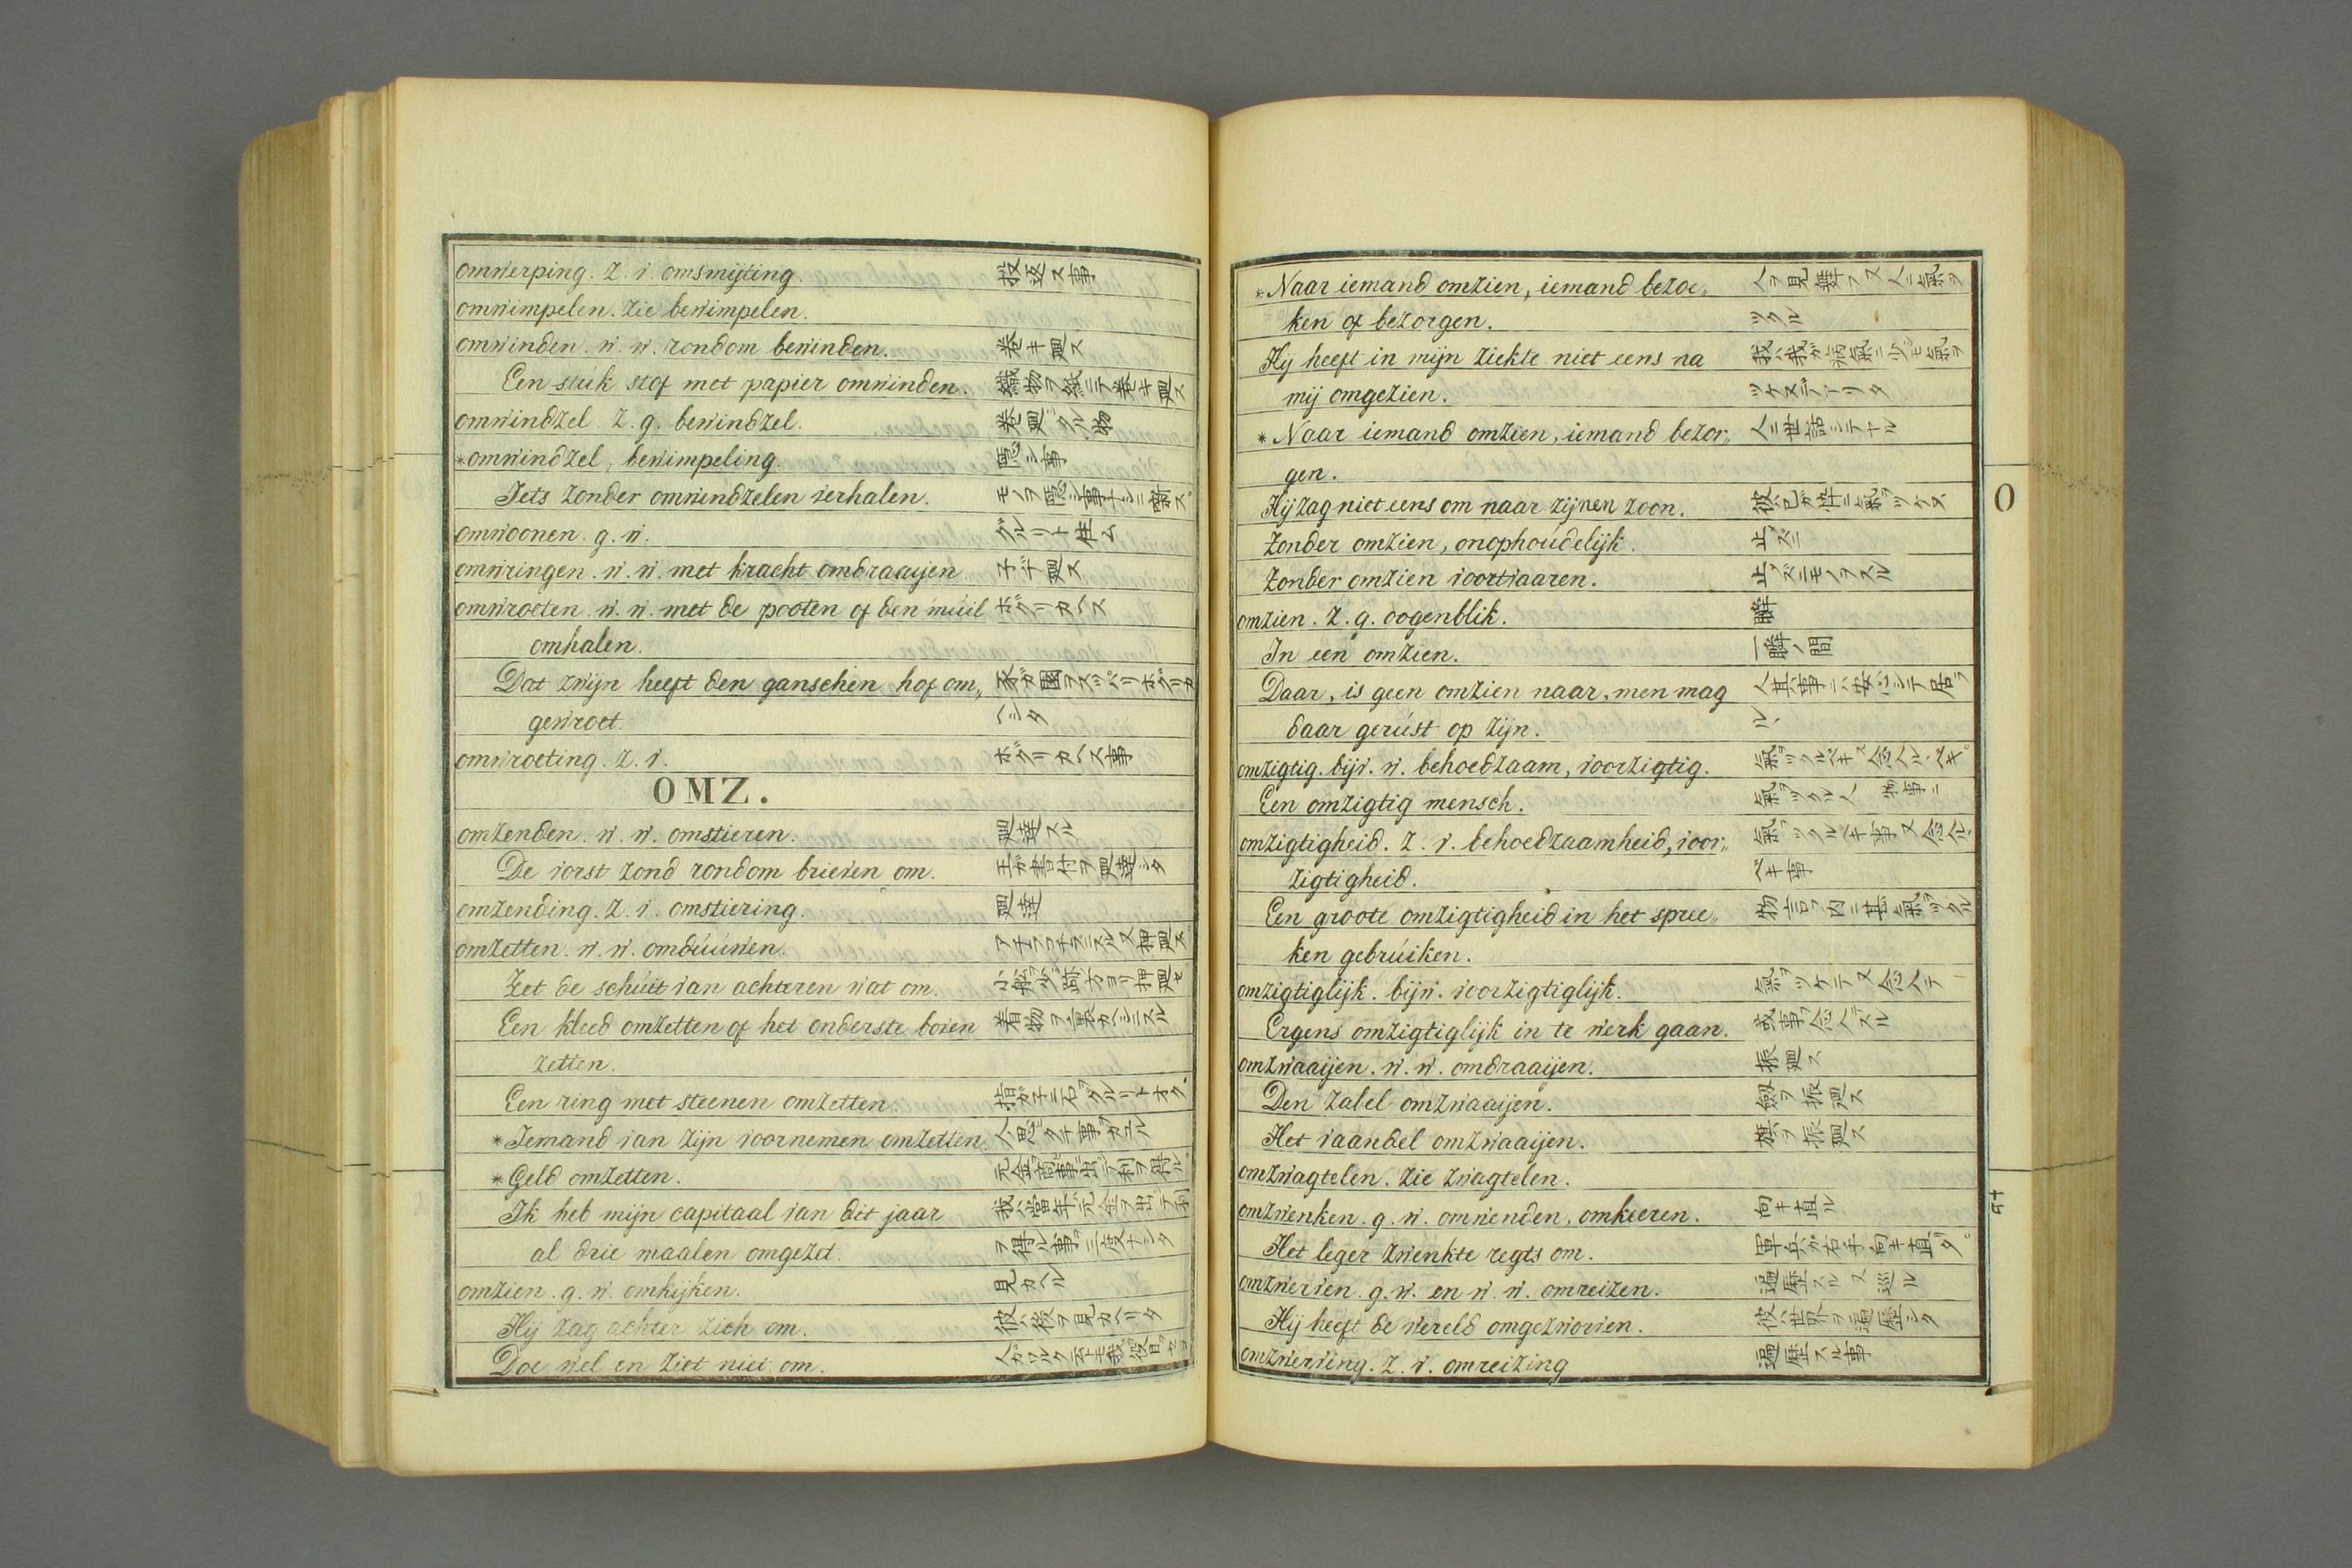 omwerping. z. v. omsmijting. 投返ス事
omwimpelen. zie bewimpelen.
omwinden. w. w. rondom bewinden. 巻キ廻ス
Een stúk stof met papier omwinden. 織物ヲ紙ニテ巻キ廻ス
omwindzel. z. g. bewindzel. 巻廻シタル物
*omwindzel, bewimpeling. 隠シ事
Iets zonder omwendzelen verhalen. モノヲ隠シ事ナシニ
omwoonen. g. w. グルリト住ム
omwringen. w. w. met kracht omdraaijen 子ヂ廻ス
omwroeten. w. w. met de pooten of den múil ホグリカヘス
omhalen.
Dat zwijn heeft den ganschen hof om„ 豕ガ園ヲスッパリホグリカ
gewroet. ヘシタ
omwroeting. z. v. ホグリカヘス事
OMZ.
omzenden. w. w. omstieren. 廻達スル
De vorst zond rondom brieven om. 王ガ書付ヲ廻達シタ
omzending. z. v. omstiering. 廻達
omzetten. w. w. ombúúwen. 押廻ス
Zet de schúit van achteren wat om. 押廻セ
Een kleed omzetten of het onderste boven 着物ヲ裏カヘシニスル
zetten.
Een ring met steenen omzetten. 指ガ子ニ石ヲグルリトオク
*Iemand van zijn voornemen omzetten.
*Geld omzetten. 元金ヲ商事ニ出シテ利ヲ得ル
Ik heb mijn capitaal van dit jaar 我ハ當年元金ヲ出シテ利
al drie maalen omgezet. ヲ得ル事ヲ三度ナシタ
omzien. g. w. omkijken. 見カヘル
Hij zag achter zich om. 彼ハ後ヲ見カヘリタ
Doe wel en ziet niet om.
*Naar iemand omzien, iemand bezoe„ 人ヲ見舞フ又人ニ氣ヲ
ken of bezorgen. ツクル
Hij heeft in mijn ziekte niet eens na 我ガ病氣ニ少シモ氣ヲ
mij omgezien. ツケズデアリタ
*Naar iemand omzien, iemand bezor„ 人ニ世話シテヤル
gen.
Hij zag niet eens om naar zijnen zoon. 彼ハ己ガ忰ニ氣ヲツケヌ
Zonder omzien, onophoúdelijk. 止ズニ
Zonder omzien voortvaaren. 止ズニモノヲスル
omzien. z. g. oogenblik. 瞬
In een omzien. 一瞬ノ間
Daar, is geen omzien naar, men mag 人其事ニハ安心シテ居ラ
daar gerúst op zijn. ルヽ
omzigtig. bijv. w. behoedzaam, voorzigtig. 氣ヲツクルベキ又念入ルベキ
Een omzigtig mensch. 物事ニ氣ヲツクル人
omzigtigheid. z. v. behoedzaamheid, voor„ 氣ヲツクルベキ事又念入ル
zigtigheid. ベキ事
Een groote omzigtigheid in het spree„ 物言フ内ニ甚氣ヲツクル
ken gebrúiken.
omzigtiglijk. bijw. voorzigtiglijk. 氣ヲツケテ又念入テ
Ergens omzigtiglijk in te werk gaan. 或事ヲ念入テスル
omzwaaijen. w. w. omdraaijen. 振廻ス
Den zabel omzwaaijen. 劔ヲ振廻ス
Het vaandel omzwaaijen. 旗ヲ振廻ス
omzwagtelen. zie zwagtelen.
omzwenken. g. w. omwenden, omkeeren. 向キ直ル
Het leger zwenkte regts om. 軍兵ガ右手ニ向キ直リタ
omzwerven. g. w. en w. w. omreizen. 遍歴スル又巡ル
Hij heeft de wereld omgezworven. 彼ハ世界ヲ遍歴シタ
omzwerving. z. v. omreizing 遍歴スル事
O